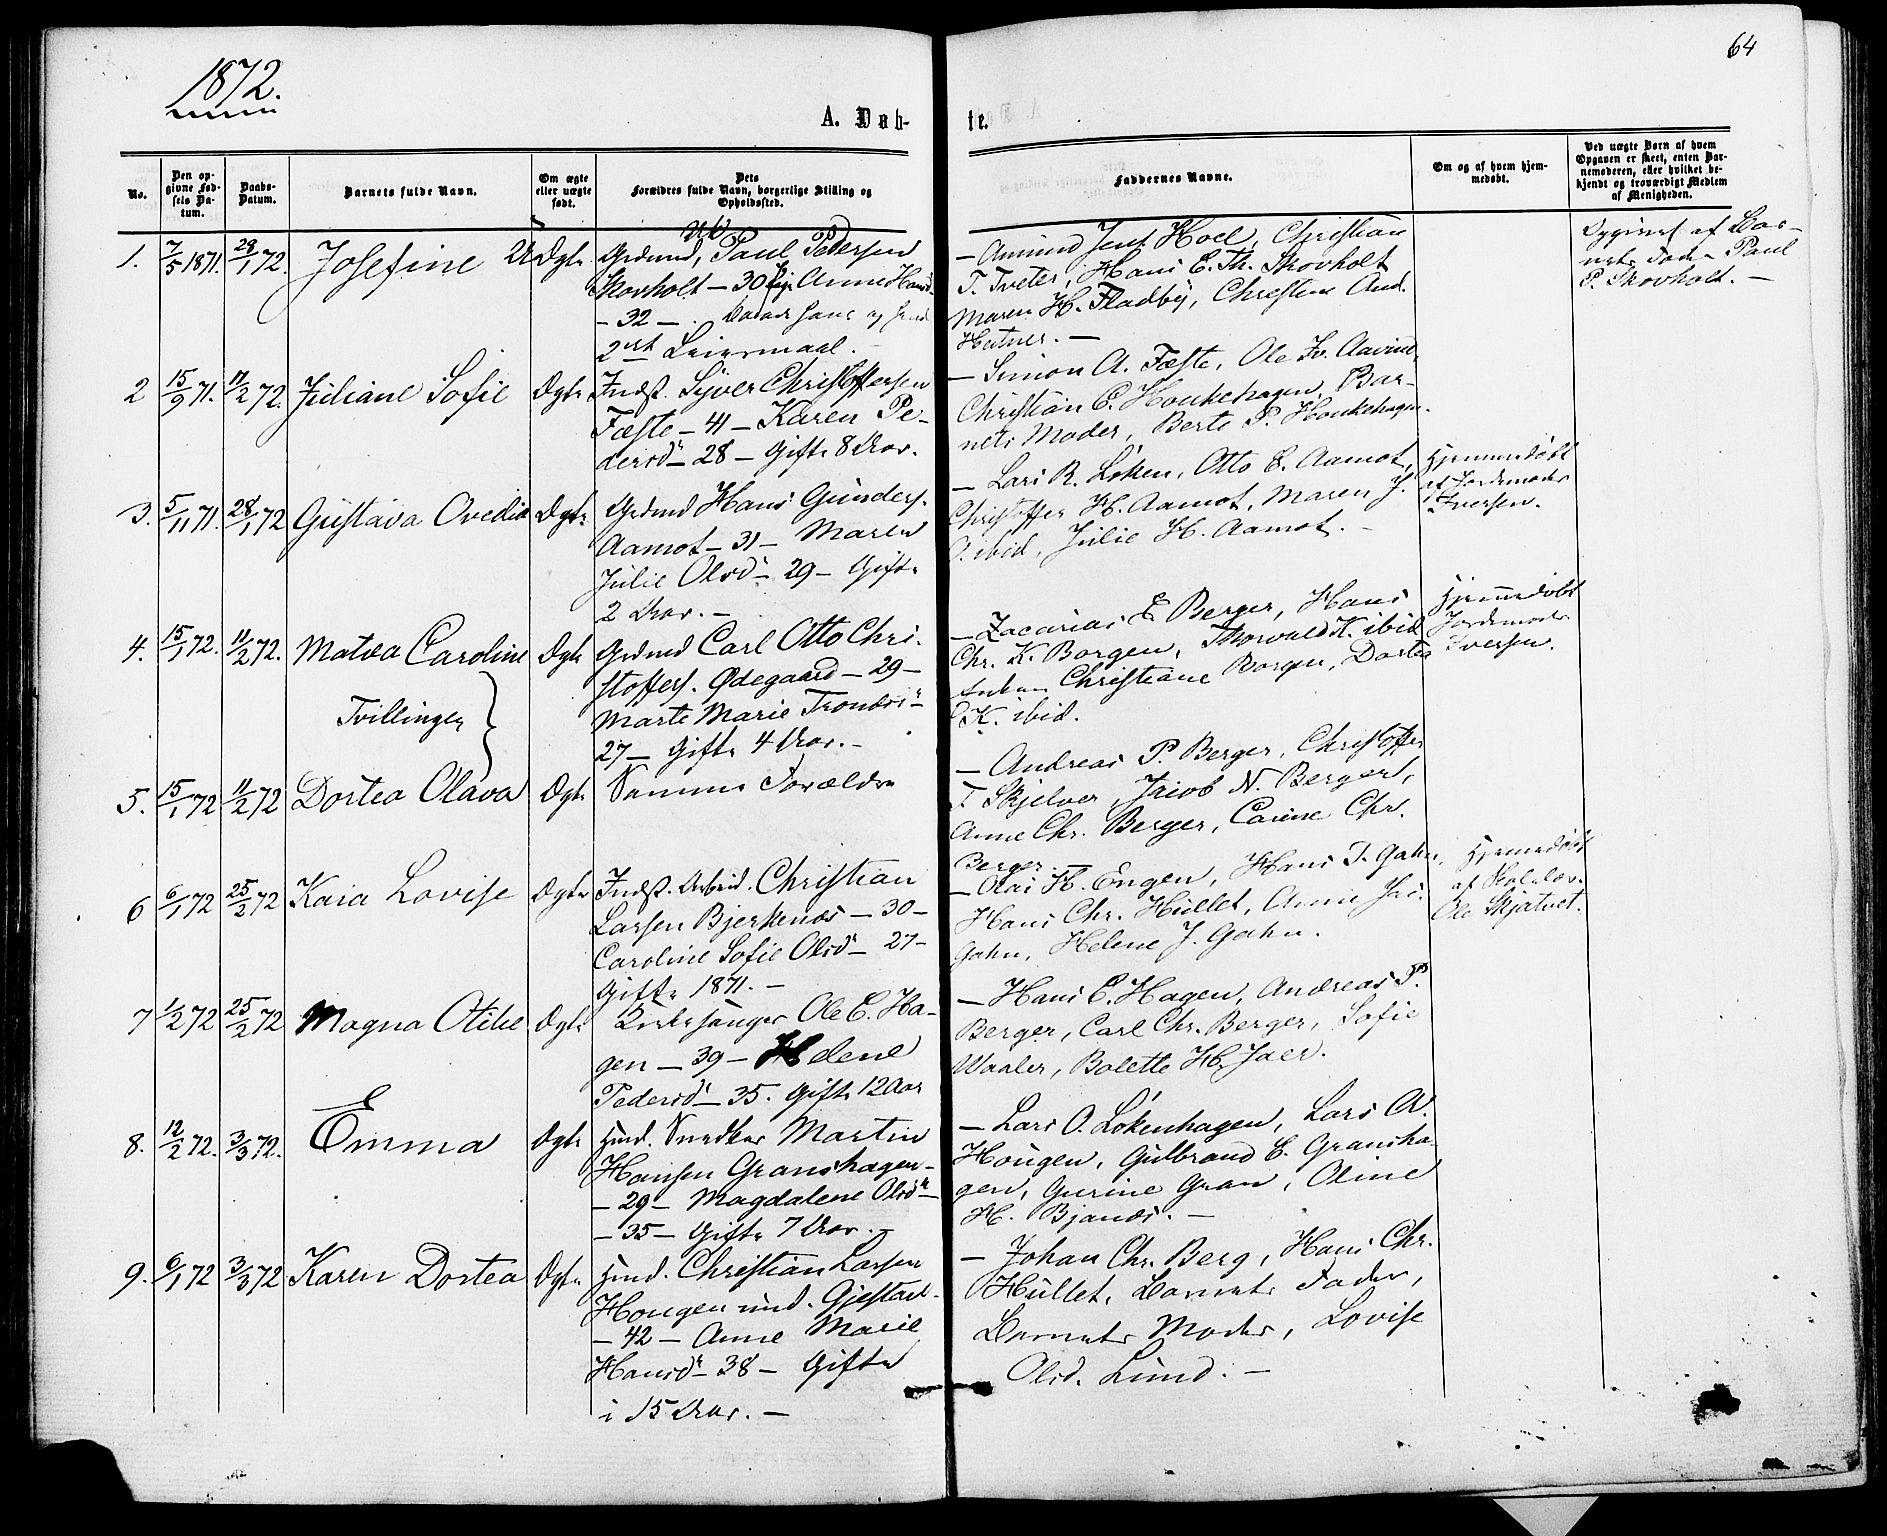 1872.
64
A. Døb-
te.
No.
Den op-
givne Fød-
sels Da-
tum.
Daabs-
Datum.
Barnets fulde Navn.
Om ægte
eller uægte
født.
Dets
Forældres fulde Navn, borgerlige Stilling og
Opholdssted.
Faddernes Navne.
Om og af hvem hjem-
medøbt.
Ved uægte Børn af hvem
Opgaven er skeet, enten Bar-
nemoderen, eller hvilket be-
kjendt og troværdigt Medlem
af Menigheden.
1. 7/5 1871. 28/1 72. Josefine U Ægte
Paul Pedersen
Skovholt – 30 Pige Anne Hansd.
– 32 –
2det Leiermaal.
– Amund Jens. Hoel, Christian
T. Tveter, Hans E. Th. Skovholt
Maren H. Fladby, Christine And.
– Opgivet af Bar-
nets Fader Paul
P. Skovholt. –
2 15/9 71. 11/2 72. Juliane Sofie Ægte
Indst. Syver Christoffersen
Fæste – 41 – Karen Pe-
dersdr – 28 – Gifte 8 Aar.
– Simon A. Fæste, Ole
Christian E. Honkehagen, Bar-
nets Moder, Berte P. Honkehagen.
3. 5/11 71. 28/1 72 Gustava Ovedia Ægte
Grdmd Hans Gunders.
Aamot – 31 – Maren
Julie Olsdr – 29 – Gifte
2 Aar. –
– Lars R. Løken, Otto E. Aamot,
Christoffer H. Aamot, Maren J.
O. ibid, Julie H. Aamot. –
Hjemmedøbt
af Jordemoder
Iversen.
4. 15/1 72. 11/2 72. Matea Caroline Ægte
Tvillinger
Grdmd Carl Otto Chri-
stoffers. Ødegaard – 29 –
Marte Marie Trondsdr –
27 – Gifte 4 Aar. –
– Zacarias E Berger, Hans
Chr. K. Borgen, Thorvald K. ibid
Christiane Borgen, Dortea
K. ibid.
Hjemmedøbt
Jordemoder
Iversen.
5. 15/1 72 11/2 72 Dortea Olava Ægte
Samme Forældre
– Andreas P. Berger, Christoffer
T. Skjelver, Jacob N. Berger,
Anne Chr. Berger, Carine Chr.
Berger.
6 6/1 72 25/2 72 Kaia Lovise Ægte
Indst. Arbeid. Christian
Larsen Bjerkenæs – 30 –
Caroline Sofie Olsdr – 27 –
Gifte 1871. –
– Olai H. Engen, Hans J. Gahn,
Hans Chr. Hullet, Anne Jac.
Gahn, Helene J. Gahn.
Hjemmedøbt
af Skolelær.
Ole Skjatvet.
7 1/2 72 25/2 72 Magna Otilie Ægte
Kirkesanger Ole E. Ha-
gen – 39 – Helene
Pedersdr – 35. Gifte 12 Aar
– Hans E. Hagen, Andreas P.
Berger, Carl Chr. Berger, Sofie
Waaler, Bolette H. Jaer.
8. 12/2 72. 3/3 72. Emma Ægte
Hmd. Snedker Martin
Hansen Granshagen –
– 29 – Magdalene Olsdr –
– 35 – Gifte 7 Aar. –
– Lars O. Løkenhagen, Lars A.
Hougen, Gulbrand E. Gransha-
gen, Gurine Gran, Oline
H. Bjanæs. –
9. 6/1 72 3/3 72 Karen Dortea Ægte
Hmd. Christian Larsen
Hougen und. Gjestad –
– 42 – Anne Marie
Hansdr – 38 – Gifte
i 15 Aar. –
– Johan Chr. Berg, Hans Chr.
Hullet, Barnets Fader,
Barnets Moder, Lovise
Olsd. Lund. –